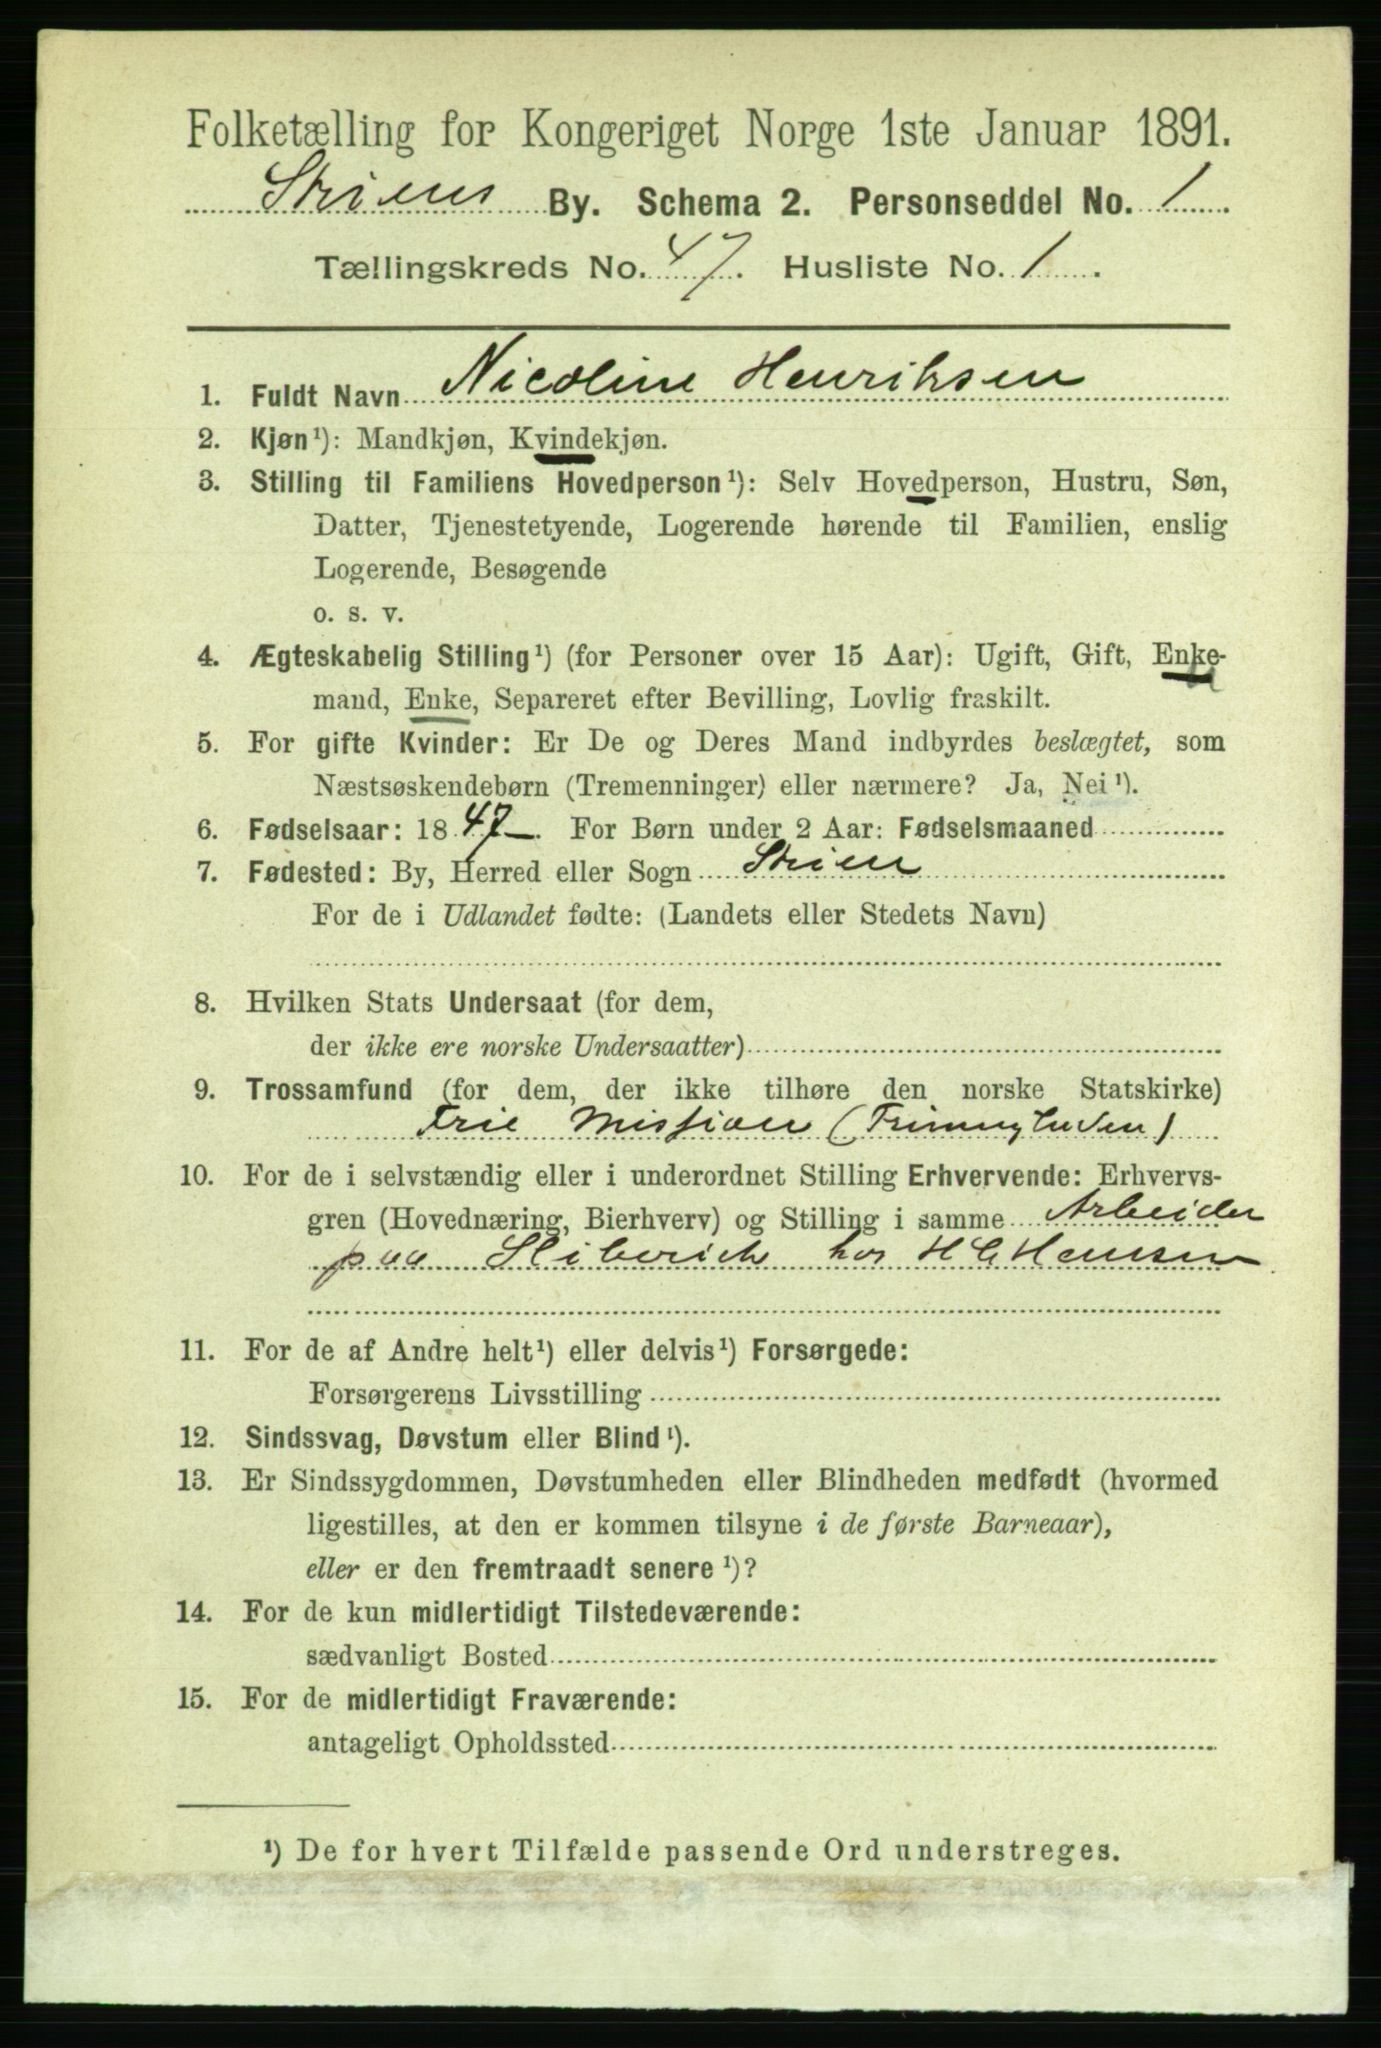 Folketælling for Kongeriget Norge 1ste Januar 1891.
Skiens By. Schema 2. Personseddel No. 1.
Tællingskreds No. 47. Husliste No. 1.
1. Fuldt Navn Nicoline Henriksen
2. Kjøn¹): Mandkjøn, Kvindekjøn.
3. Stilling til Familiens Hovedperson¹): Selv Hovedperson, Hustru, Søn,
Datter, Tjenestetyende, Logerende hørende til Familien, enslig
Logerende, Besøgende
o. s. v.
4. Ægteskabelig Stilling¹) (for Personer over 15 Aar): Ugift, Gift, Enke-
mand, Enke, Separeret efter Bevilling, Lovlig fraskilt.
5. For gifte Kvinder: Er De og Deres Mand indbyrdes beslægtet, som
Næstsøskendebørn (Tremenninger) eller nærmere? Ja, Nei¹).
6. Fødselsaar: 1847. For Børn under 2 Aar: Fødselsmaaned
7. Fødested: By, Herred eller Sogn Skien
For de i Udlandet fødte: (Landets eller Stedets Navn)
8. Hvilken Stats Undersaat (for dem,
der ikke ere norske Undersaatter)
9. Trossamfund (for dem, der ikke tilhøre den norske Statskirke)
Frie Mission
10. For de i selvstændig eller i underordnet Stilling Erhvervende: Erhvervs-
gren (Hovednæring, Bierhverv) og Stilling i samme Arbeider
paa hos H C Hansen
11. For de af Andre helt¹) eller delvis¹) Forsørgede:
Forsørgerens Livsstilling
12. Sindssvag, Døvstum eller Blind¹).
13. Er Sindssygdommen, Døvstumheden eller Blindheden medfødt (hvormed
ligestilles, at den er kommen tilsyne i de første Barneaar),
eller er den fremtraadt senere¹)?
14. For de kun midlertidigt Tilstedeværende:
sædvanligt Bosted
15. For de midlertidigt Fraværende:
antageligt Opholdssted
¹) De for hvert Tilfælde passende Ord understreges.